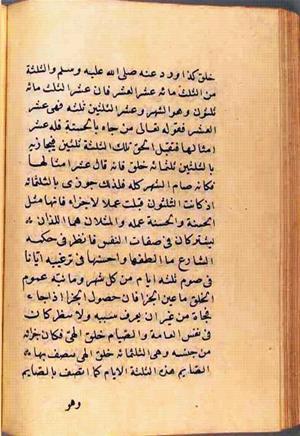 خلق كذا ورد عنه صلى الله عليه وسلم والثلثة
من الثلث مائه عشر العشر فان عشر الثلث مائه
ثلثون وهو الشهر وعشر الثلثين ثلثه فهى عشر
العشر فقوله تعالى من جاء بالحسنة فله عشر
امثالها فتقبل الحق تلك الثلثة الثلثين فيجازيه
بالثلثين ثلثمائة خلق فانه قال عشر امثالها
فكانه صام الشهر كله فلذلك جوزى بالثلثمائه
اذ كانت الثلثون قبلت عملا لاجزاء فانها مثل
الحسنة والحسنة عمله والمثلان هما اللذان
يشتركان فى صفات النفس فانظر فى حكمة
الشارع ما الطفها واحسنها فى ترغيبه ايانا
فى صوم ثلثه ايام من كل شهر وما نبه عموم
الخلق ما عين الجزا فان حصول الجزا اذا جاء
فجأة من غير ان يعرف سببه ولا ينتظر كان
فى نفس العامة والصيام خلق الهى فكان جزائه
من جنسه وهى الثلثمائه خلق الهى يتصف بها
الصايم هذه الثلثة الايام كما اتصف بالصايم
وهو